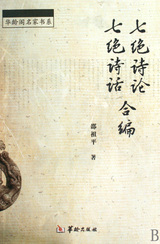 华龄阁名家书系
七绝诗论
七绝诗话
合编
邵祖平 著
华龄出版社
B